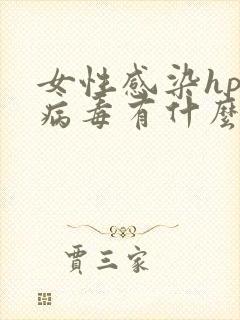 女性感染hp
病毒有什麼
賈三家